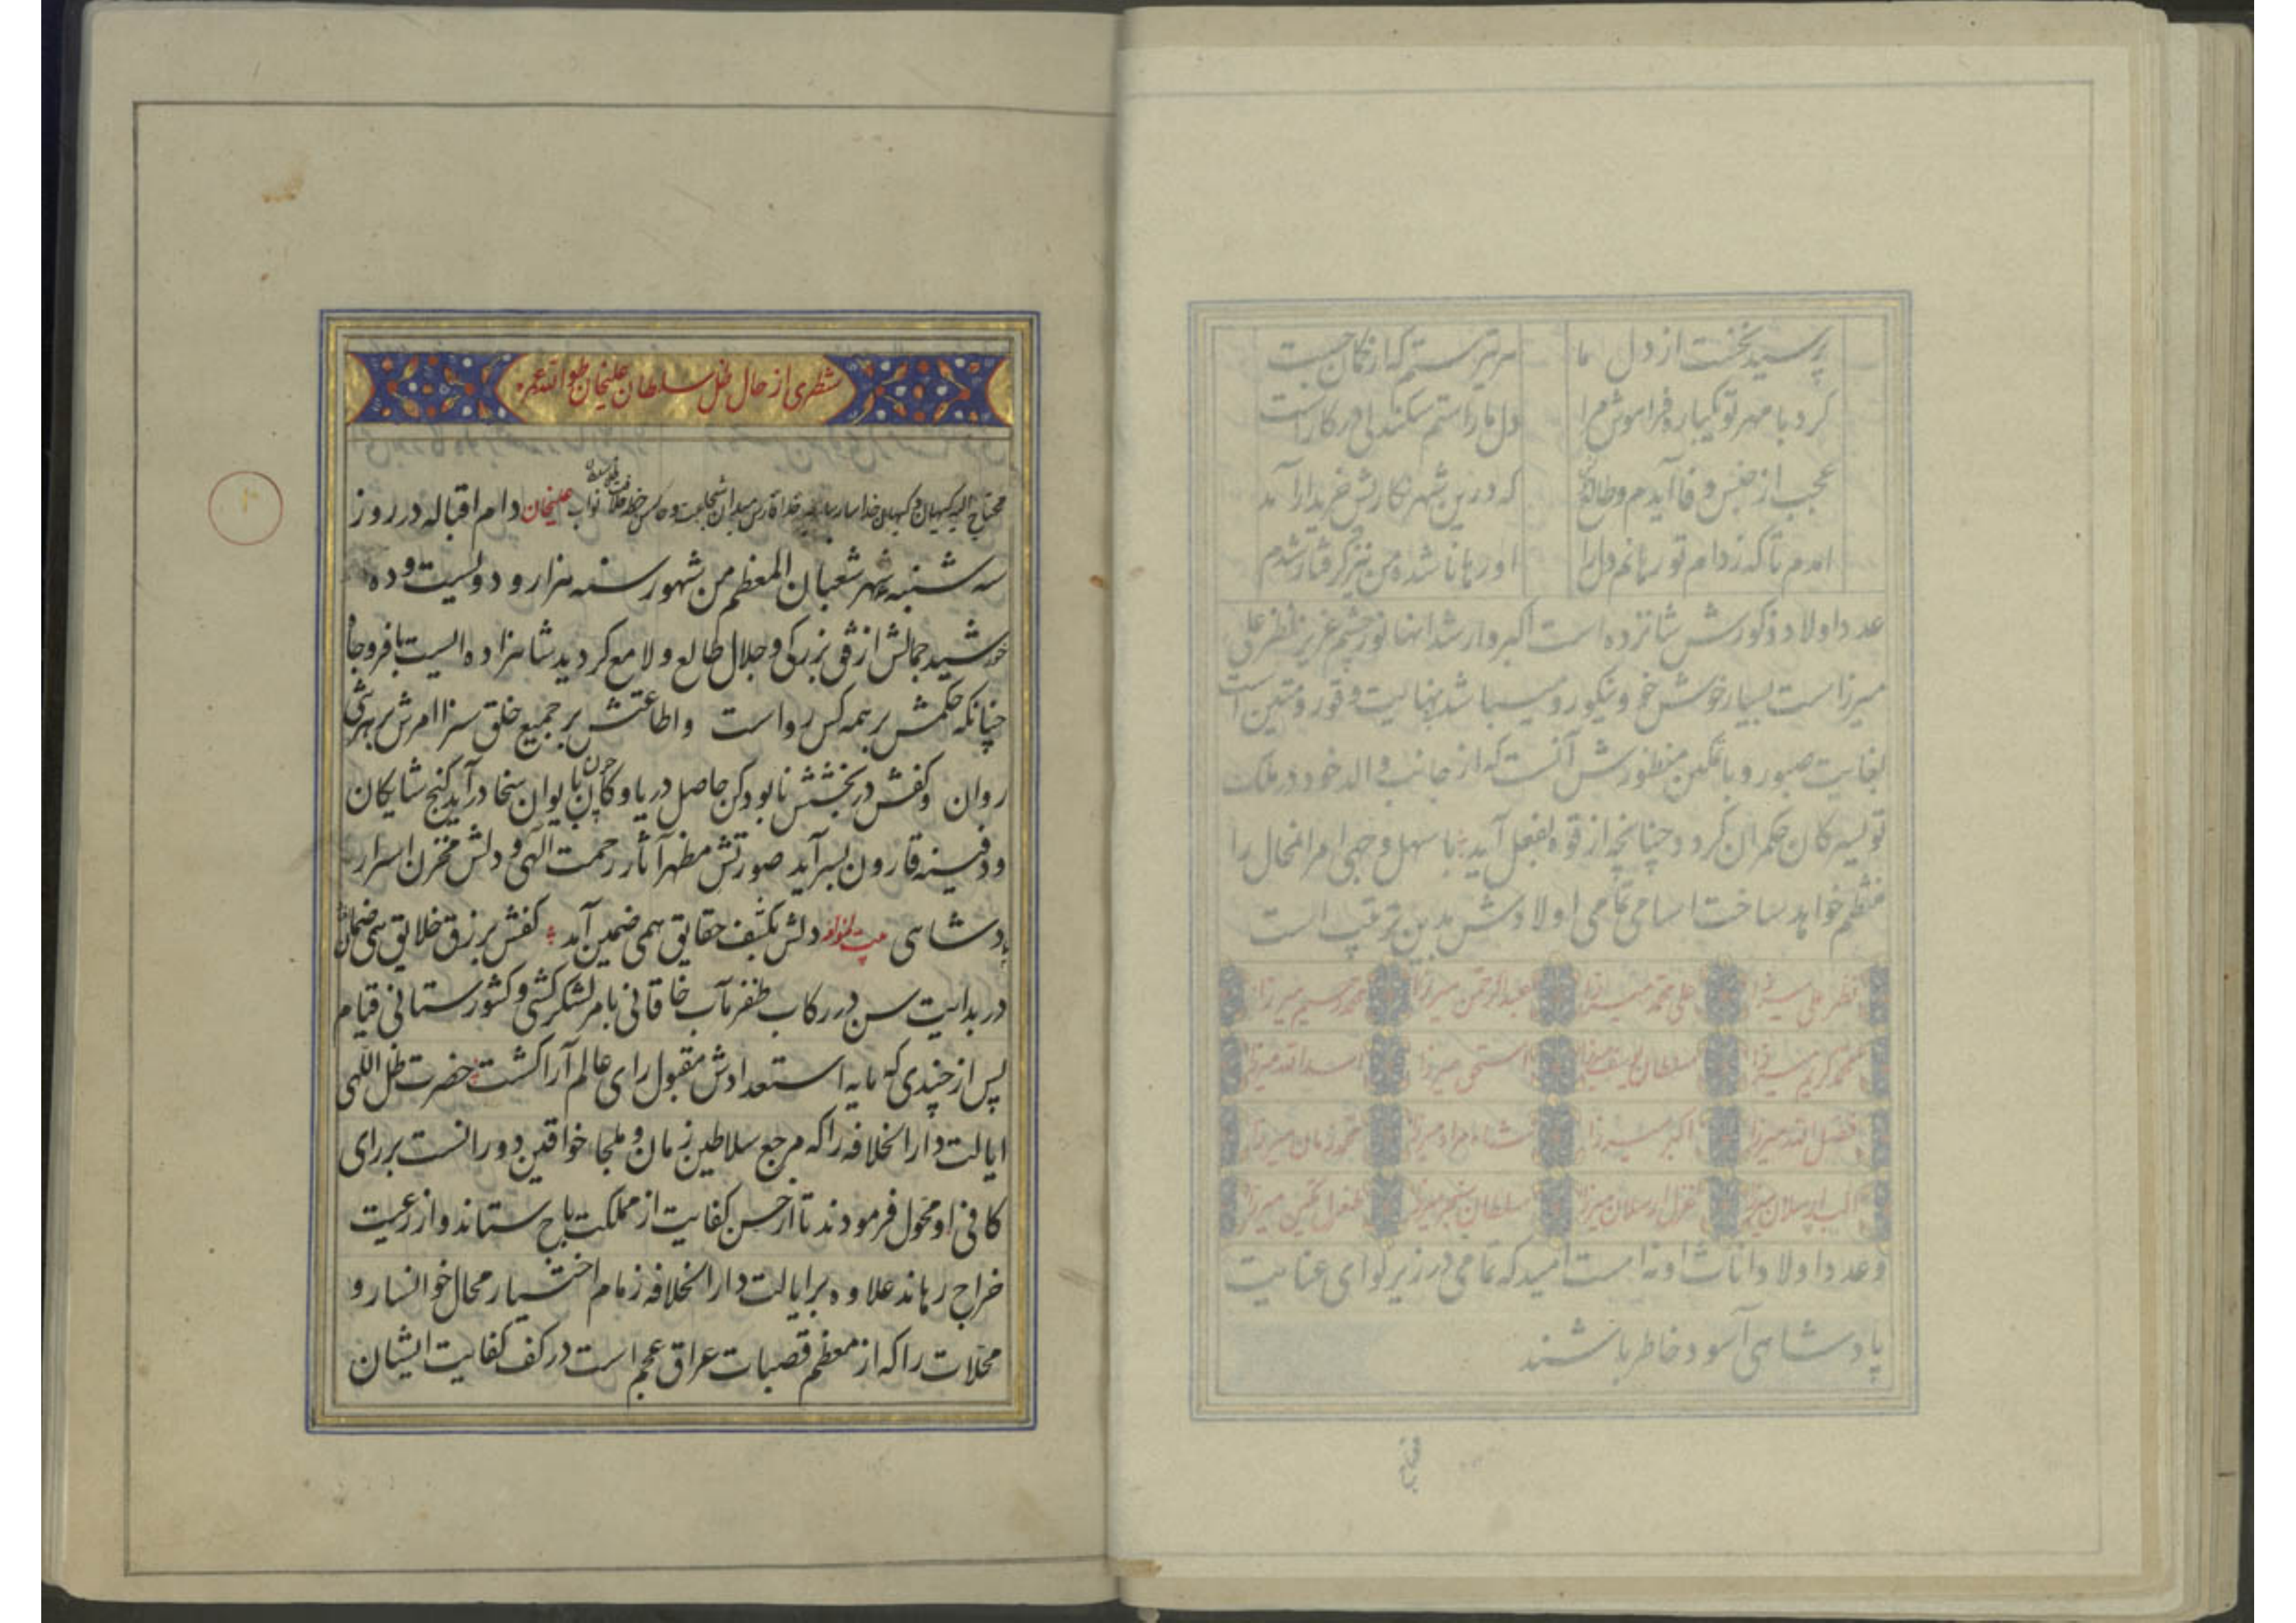 پرسید نخست از دل ما
کرد با مهر تو یکباره فراموش مرا
عجب از جنس وفا آیدم و طالع
که درین شهر کارش خریدار آمد
آمدم تا که ز دام تو رهانم دل را
او رها ناشده من نیز گرفتار شدم
عدد اولاد ذکورش شانزده است اکبر و ارشد اینها نور چشم عزیز ظفر علی
میرزا است بسیار خوش خو و نیکورو میباشد بغایت وقور و متین است
بغایت صبور و با تمکین منظورش آنست که از جانب والد خود در ملک
تویسرکان حکمران گردد چنانچه از قوه بفعل آید با سهل وجهی امر المحال را
منظم خواهد ساخت اسامی تمامی اولادش بدین ترتیب است
ظفر علی میرزا علی محمد میرزا عبدالرحمن میرزا محمد رحیم میرزا
محمد کریم میرزا سلطان یوسف میرزا اسحق میرزا اسدالله میرزا
فضل الله میرزا اکبر میرزا شاه مراد میرزا محمد زمان میرزا
الب ارسلان میرزا قزل ارسلان میرزا سلطان سنجر میرزا طغرل تکین میرزا
و عدد اولاد اناث او نه است امید که تمامی در زیر لوای عنایت
پادشاهی آسوده خاطر باشند
شطری از حال ظل سلطان علیخان طول الله عمره
نواب علیخان دام اقباله در روز
سه شنبه شهر شعبان المعظم من شهور سنه هزار و دولیست و ده
خورشید جمالش از افق بزرگی و جلال طالع و لامع گردید شاهزاده ایست با فر و جاه
چنانکه حکمش بر همه کس رواست و اطاعتش بر جمیع خلق سزا امرش بر هر شی
روان و کفش در بخشش نابود کن حاصل دریا و کان چون بایوان سخا درآید گنج شایکان
و دفینه قارون بسرآید صورتش مظهر آثار رحمت الهی و دلش مخزن اسرار
پادشاهی دلش بکشف حقایق همی ضمین آمد کفش برزق خلایق همی ضمان
در بدایت سن در رکاب ظفر مآب خاقانی بامر لشکرکشی و کشورستانی قیام
پس از چندی که مایه استعدادش مقبول رای عالم آرا گشت حضرت ظل اللهی
ایالت دار الخلافه را که مرجع سلاطین زمان و ملجاء خواقین دورانست بر رای
کافی او محول فرمودند تا از حسن کفایت از مملکت باج ستاند و از رعیت
خراج رهاند علاوه بر ایالت دار الخلافه زمام اختیار محال خوانسار و
محلات را که از معظم قصبات عراق عجم است در کف کفایت ایشان